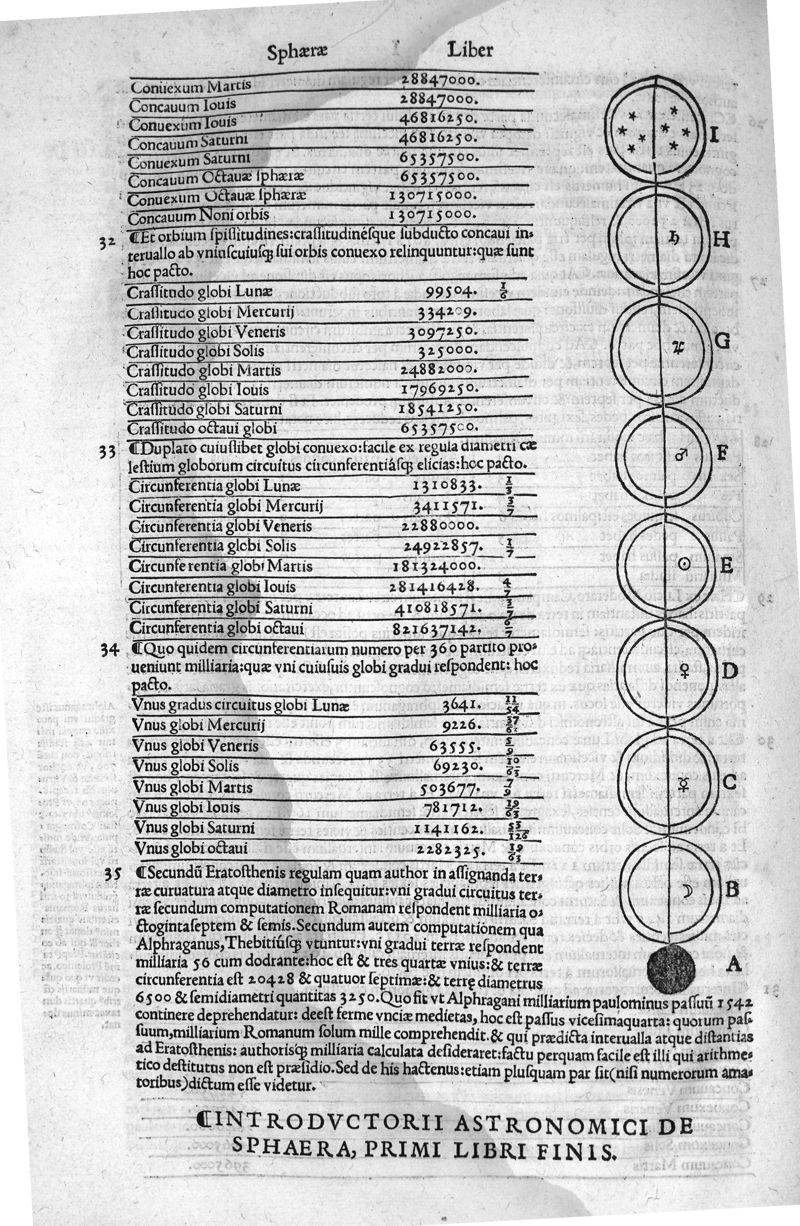 Sphæræ Liber
Conuexum Martis 28847000.
Concauum Iouis 28847000.
Conuexum Iouis 46816250.
Concauum Saturni 46816250.
Conuexum Saturni 65357500.
Concauum Octauæ ſphæræ 65357500.
Conuexum Octauæ ſphæræ 130715000.
Concauum Noni orbis 130715000.
32 ¶Et orbium ſpiſſitudines: craſſitudinéſque ſubducto concaui in⸗
teruallo ab vniuſcuiuſq; ſui orbis conuexo relinquuntur: quæ ſunt
hoc pacto.
Craſſitudo globi Lunæ 99504. 1/6
Craſſitudo globi Mercurij 334209.
Craſſitudo globi Veneris 3097250.
Craſſitudo globi Solis 325000.
Craſſitudo globi Martis 24882000.
Craſſitudo globi Iouis 17969250.
Craſſitudo globi Saturni 18541250.
Craſſitudo octaui globi 65357500.
33 ¶Duplato cuiuſlibet globi conuexo: facile ex regula diametri cæ
leſtium globorum circuitus circunferentiáſq; elicias: hoc pacto.
Circunferentia globi Lunæ 1310833. 1/3
Circunferentia globi Mercurij 3411571. 3/7
Circunferentia globi Veneris 22880000.
Circunferentia globi Solis 24922857. 1/7
Circunferentia globi Martis 181324000.
Circunferentia globi Iouis 281416428. 4/7
Circunferentia globi Saturni 410818571. 3/7
Circunferentia globi octaui 821637142. 6/7
34 ¶Quo quidem circunferentiarum numero per 360 partito pro⸗
ueniunt milliaria: quæ vni cuiuſuis globi gradui reſpondent: hoc
pacto.
Vnus gradus circuitus globi Lunæ 3641. 11/54
Vnus globi Mercurij 9226.
Vnus globi Veneris 63555. 5/9
Vnus globi Solis 69230. 10/63
Vnus globi Martis 503677. 7/9
Vnus globi Iouis 781712. 19/63
Vnus globi Saturni 1141162. 55/126
Vnus globi octaui 2282325. 19/63
35 ¶Secundũ Eratoſthenis regulam quam author in aſſignanda ter⸗
ræ curuatura atque diametro inſequitur: vni gradui circuitus ter⸗
ræ ſecundum computationem Romanam reſpondent milliaria o⸗
ctogintaſeptem & ſemis. Secundum autem computationem qua
Alphraganus, Thebitiúſq; vtuntur: vni gradui terræ reſpondent
milliaria 56 cum dodrante: hoc eſt & tres quartæ vnius: & terræ
circunferentia eſt 20428 & quatuor ſeptimæ: & terrę diametrus
6500 & ſemidiametri quantitas 3250. Quo fit vt Alphragani milliarium paulominus paſſuũ 1542
continere deprehendatur: deeſt ferme vnciæ medietas, hoc eſt paſſus viceſimaquarta: quorum paſ⸗
ſuum, milliarium Romanum ſolum mille comprehendit. & qui prædicta interualla atque diſtantias
ad Eratoſthenis: authoriſq; milliaria calculata deſideraret: factu perquam facile eſt illi qui arithme⸗
tico deſtitutus non eſt præſidio. Sed de his hactenus: etiam pluſquam par ſit (niſi numerorum ama⸗
toribus) dictum eſſe videtur.
¶INTRODVCTORII ASTRONOMICI DE
SPHAERA, PRIMI LIBRI FINIS.
I
H
♄
G
♃
F
♂
E
☉
D
♀
C
☿
B
☽
A